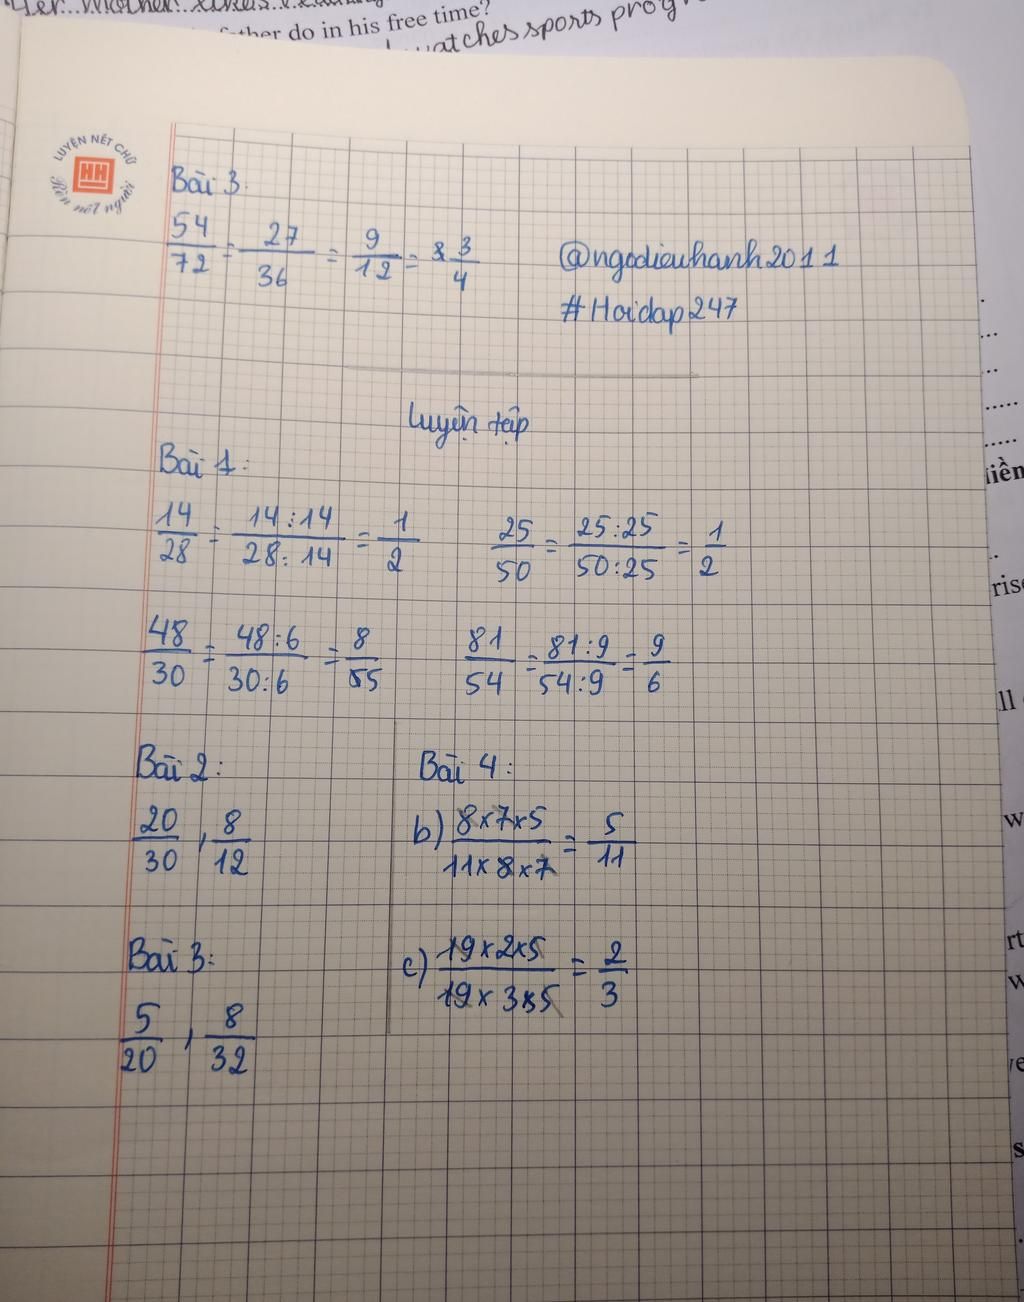 father do in his free time?
watches sports
LUYỆN NÉT CHỮ
HH
Rèn nết người
Bài 3.
54/72 = 27/36 = 9/12 = 3/4
@ngodieuhanh2011
#Hoidap247
Luyện tập
Bài 1:
14/28 = 14:14/28:14 = 1/2   25/50 = 25:25/50:25 = 1/2
48/30 = 48:6/30:6 = 8/5   81/54 = 81:9/54:9 = 9/6
Bài 2:
20/30, 8/12
Bài 3:
5/20, 8/32
Bài 4:
b) 8×7×5/11×8×7 = 5/11
c) 19×2×5/19×3×5 = 2/3